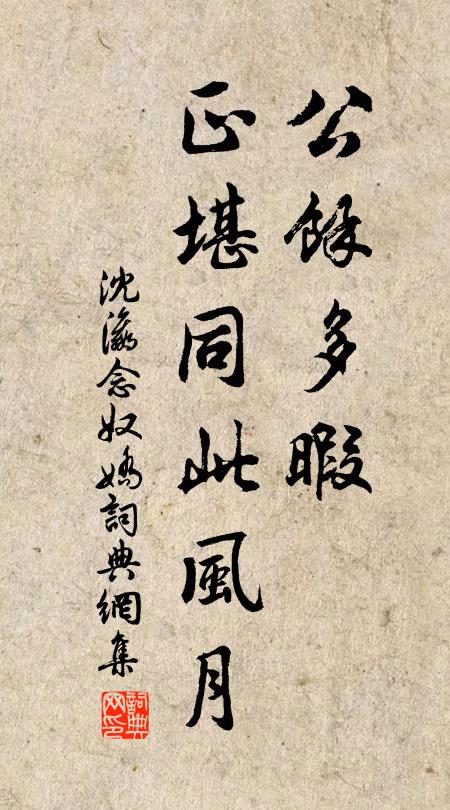 公餘多暇
正堪同此風月
沈瀛念奴嬌詞典網集
詞典
网印